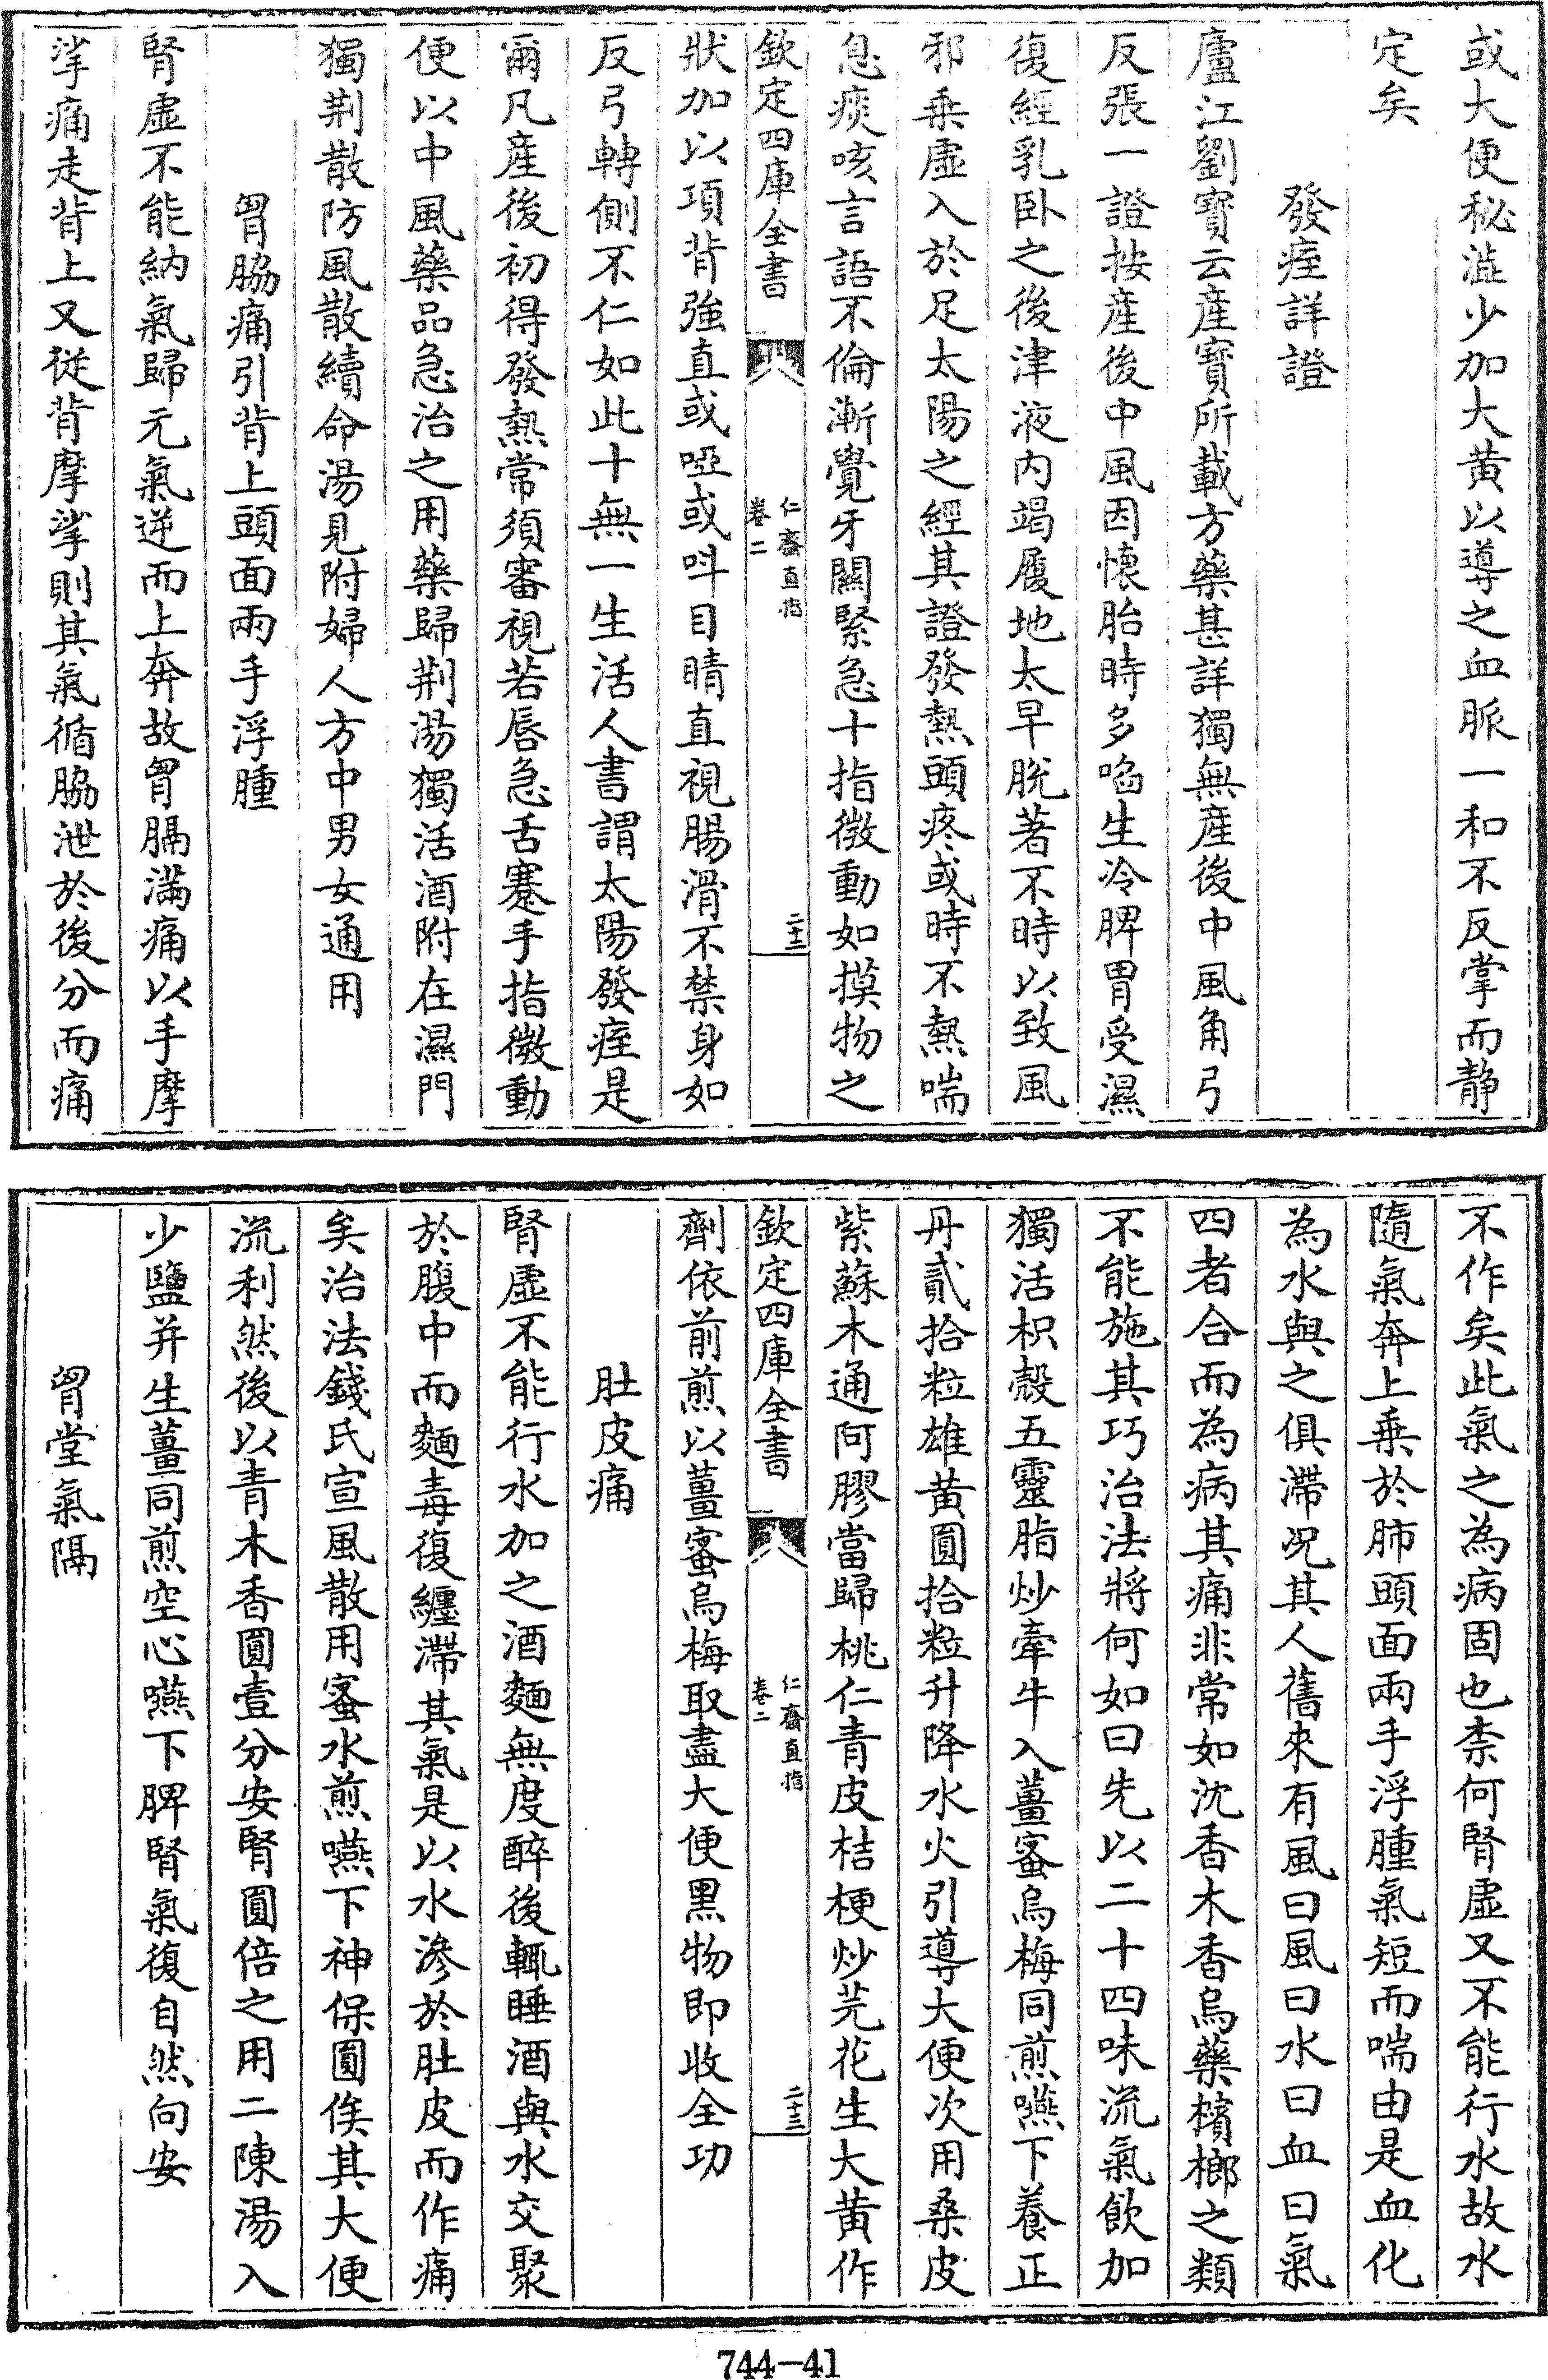 或大便秘澁少加大黄以導之血脈一和不反掌而静
定矣
發痓詳證
廬江劉寳云産寳所載方藥甚詳獨無産後中風角弓
反張一證按産後中風因懐胎時多啗生冷脾胃受濕
復經乳卧之後津液内竭履地太早脱著不時以致風
邪乗虚入於足太陽之經其證發熱頭疼或時不熱喘
息痰咳言語不倫漸覺牙關緊急十指微動如摸物之
欽定四庫全書
仁齋直指
卷二
二十二
狀加以項背強直或啞或呌目睛直視腸滑不禁身如
反弓轉側不仁如此十無一生活人書謂太陽發痓是
爾凡産後初得發熱常須審視若唇急舌蹇手指微動
便以中風藥品急治之用藥歸荆湯獨活酒附在濕門
獨荆散防風散續命湯見附婦人方中男女通用
胷脇痛引背上頭面兩手浮腫
腎虚不能納氣歸元氣逆而上奔故胷膈滿痛以手摩
挲痛走背上又從背摩挲則其氣循脇泄於後分而痛
不作矣此氣之為病固也柰何腎虚又不能行水故水
隨氣奔上乗於肺頭面兩手浮腫氣短而喘由是血化
為水與之俱滯况其人舊來有風曰風曰水曰血曰氣
四者合而為病其痛非常如沈香木香烏藥檳榔之類
不能施其巧治法將何如曰先以二十四味流氣飲加
獨活枳殼五靈脂炒牽牛入薑蜜烏梅同煎嚥下養正
丹貳拾粒雄黄圓拾粒升降水火引導大便次用桑皮
紫蘇木通阿膠當歸桃仁青皮桔梗炒芫花生大黄作
欽定四庫全書
仁齋直指
卷二
二十三
劑依前煎以薑蜜烏梅取盡大便黒物即收全功
肚皮痛
腎虚不能行水加之酒麵無度醉後輒睡酒與水交聚
於腹中而麵毒復纒滯其氣是以水滲於肚皮而作痛
矣治法錢氏宣風散用蜜水煎嚥下神保圓俟其大便
流利然後以青木香圓壹分安腎圓倍之用二陳湯入
少鹽并生薑同煎空心嚥下脾腎氣復自然向安
胷堂氣隔
744-41